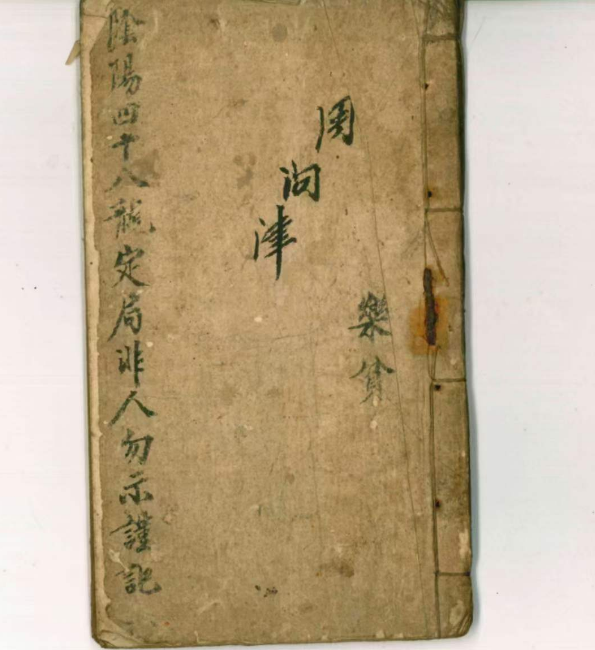 樂貧
周问津
陰陽四十八龍定局非人勿示謹記